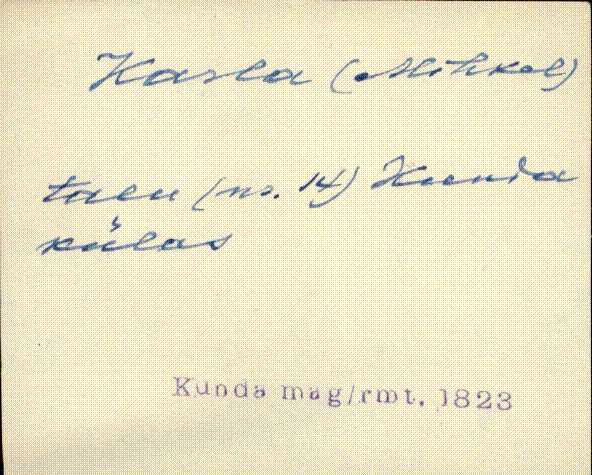 Karla (Mihkel)
talu (nr. 14) Kunda
külas
Kunda mag/rmt. 1823